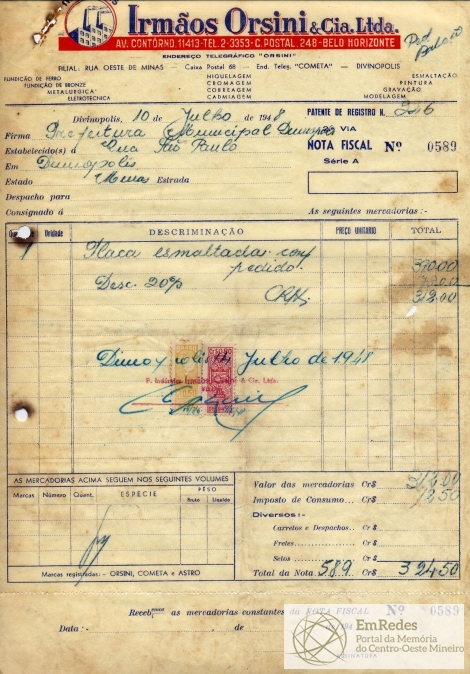 Irmãos Orsini & Cia. Ltda.
AV. CONTÔRNO, 11413-TEL. 2-3353-C. POSTAL, 248-BELO HORIZONTE
ENDEREÇO TELEGRÁFICO "ORSINI"
FILIAL: RUA OESTE DE MINAS — Caixa Postal 68 — End. Teleg. "COMETA" — DIVINOPOLIS
FUNDIÇÃO DE FERRO
FUNDIÇÃO DE BRONZE
METALURGICA
ELETROTECNICA
NIQUELAGEM
CROMAGEM
COBREAGEM
CADMIAGEM
ESMALTAÇÃO
PINTURA
GRAVAÇÃO
MODELAGEM
Divinopolis, 10 de Julho de 1948
PATENTE DE REGISTRO N. 246
Firma Prefeitura Municipal
VIA
Estabelecido(s) á Rua São Paulo
NOTA FISCAL Nº 0589
Em Divinopolis
Série A
Estado Minas Estrada
Despacho para
Consignado á
As seguintes mercadorias:-
Unidade DESCRIMINAÇÃO PREÇO UNITARIO TOTAL
1 Placa esmaltada conf
pedido 390,00
Desc 20%
CR$ 312,00
Divinopolis, Julho de 1948
P. Irmãos Orsini & Cia. Ltda.
AS MERCADORIAS ACIMA SEGUEM NOS SEGUINTES VOLUMES
Marcas Número Quant. ESPECIE PÊSO
Bruto Liquido
Marcas registradas: — ORSINI, COMETA e ASTRO
Valor das mercadorias Cr$ 312,00
Imposto de Consumo... Cr$ 12,50
Diversos :-
Carretos e Despachos.. Cr$
Fretes Cr$
Selos Cr$
Total da Nota 589 Cr$ 324,50
as mercadorias constantes da NOTA FISCAL Nº 0589
Data :- de de 194
EmRedes
Portal da Memória
do Centro-Oeste Mineiro